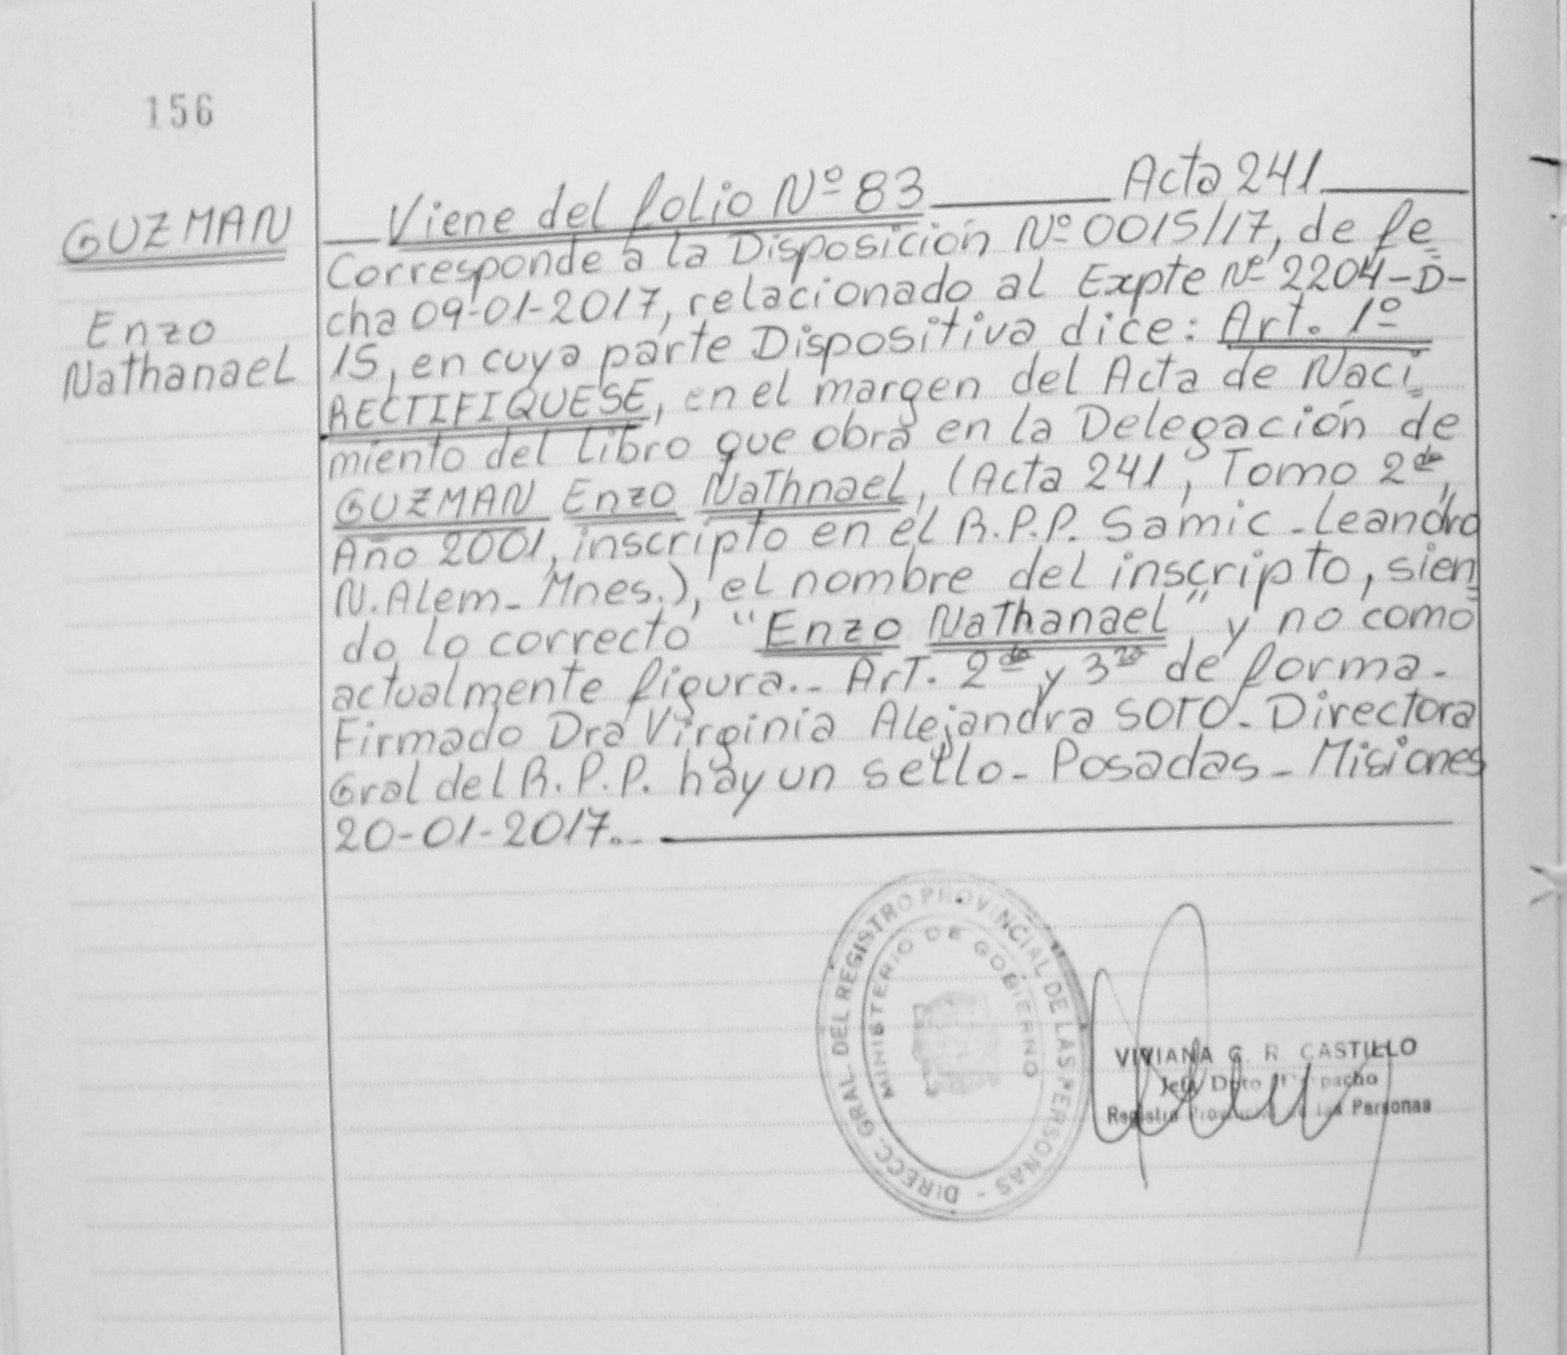 156
GUZMAN
Enzo
Nathanael
Viene del folio Nº 83 Acta 241
Corresponde a la Disposición Nº 0015/17, de fe
cha 09-01-2017, relacionado al Expte Nº 2204-D-
15, en cuya parte Dispositiva dice: Art. 1º
RECTIFIQUESE, en el margen del Acta de Naci
miento del Libro que obra en la Delegación de
GUZMAN Enzo Nathnael, (Acta 241, Tomo 2do,
Año 2001, inscripto en el R.P.P. Samic - Leandro
N. Alem - Mnes.), el nombre del inscripto, sien
do lo correcto "Enzo Nathanael" y no como
actualmente figura.- Art. 2do y 3ro de forma-
Firmado Dra Virginia Alejandra SOTO - Directora
Gral del R.P.P. hay un sello - Posadas - Misiones
20-01-2017.-
DIRECC. GRAL. DEL REGISTRO PROVINCIAL DE LAS PERSONAS -
MINISTERIO DE GOBIERNO
VIVIANA G. R. CASTILLO
Jefe Dpto
Registro Provincial de las Personas